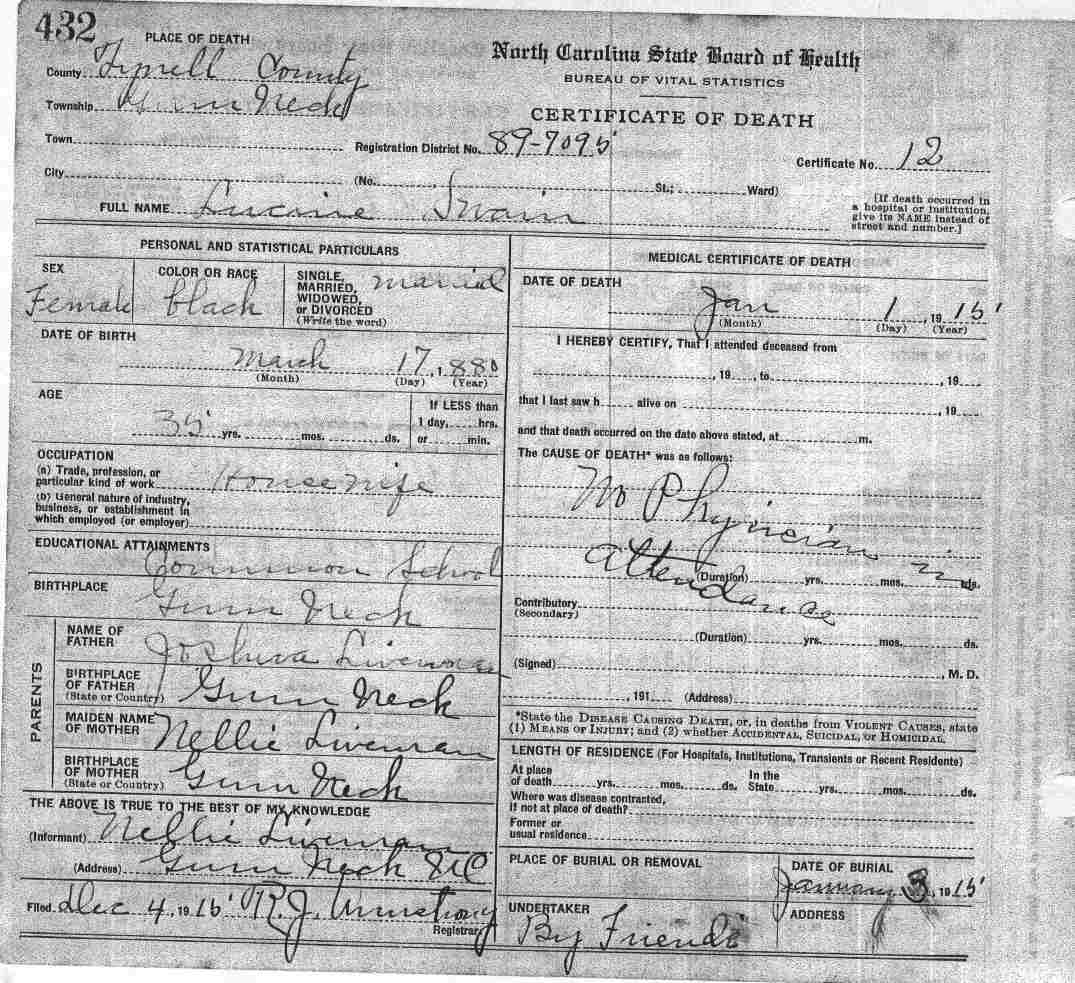 432
PLACE OF DEATH
North Carolina State Board of Health
BUREAU OF VITAL STATISTICS
CERTIFICATE OF DEATH
County Tyrrell County
Township Gum Neck
Town
Registration District No. 89-7095
Certificate No. 12
City (No. St.; Ward)
[If death occurred in
a hospital or institution,
give its NAME instead of
street and number.]
FULL NAME Swain
PERSONAL AND STATISTICAL PARTICULARS
SEX
Female
COLOR OR RACE
black
SINGLE,
MARRIED,
WIDOWED,
or DIVORCED
(Write the word)
married
DATE OF BIRTH
March 17, 1880
(Month) (Day) (Year)
AGE
35 yrs. mos. ds.
If LESS than
1 day, hrs.
or min.
OCCUPATION
(a) Trade, profession, or
particular kind of work House wife
(b) General nature of industry,
business, or establishment in
which employed (or employer)
EDUCATIONAL ATTAINMENTS
Common School
BIRTHPLACE
Gum Neck
PARENTS
NAME OF
FATHER
Joshua Liverman
BIRTHPLACE
OF FATHER
(State or Country)
Gum Neck
MAIDEN NAME
OF MOTHER
Nellie Liverman
BIRTHPLACE
OF MOTHER
(State or Country)
Gum Neck
THE ABOVE IS TRUE TO THE BEST OF MY KNOWLEDGE
(Informant) Nellie Liverman
(Address) Gum Neck NC
Filed Dec 4, 1915 R. J. Armstrong
Registrar
MEDICAL CERTIFICATE OF DEATH
DATE OF DEATH
Jan 1, 1915
(Month) (Day) (Year)
I HEREBY CERTIFY, That I attended deceased from
, 19 , to , 19
that I last saw h alive on , 19
and that death occurred on the date above stated, at m.
The CAUSE OF DEATH* was as follows:
No Physician in
Attendance
(Duration) yrs. mos. ds.
Contributory
(Secondary)
(Duration) yrs. mos. ds.
(Signed) , M. D.
, 191 (Address)
*State the DISEASE CAUSING DEATH, or, in deaths from VIOLENT CAUSES, state
(1) MEANS OF INJURY; and (2) whether ACCIDENTAL, SUICIDAL, or HOMICIDAL.
LENGTH OF RESIDENCE (For Hospitals, Institutions, Transients or Recent Residents)
At place
of death yrs. mos. ds.
In the
State yrs. mos. ds.
Where was disease contracted,
if not at place of death?
Former or
usual residence
PLACE OF BURIAL OR REMOVAL
DATE OF BURIAL
January 3, 1915
UNDERTAKER
By Friends
ADDRESS